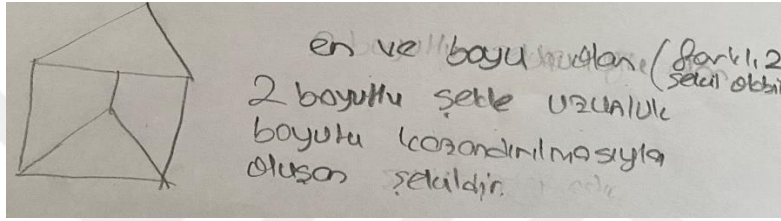 en ve boyu olan (farklı, 2
şekil olabi
2 boyutlu şekle uzunluk
boyutu kazandırılmasıyla
oluşan şekildir.